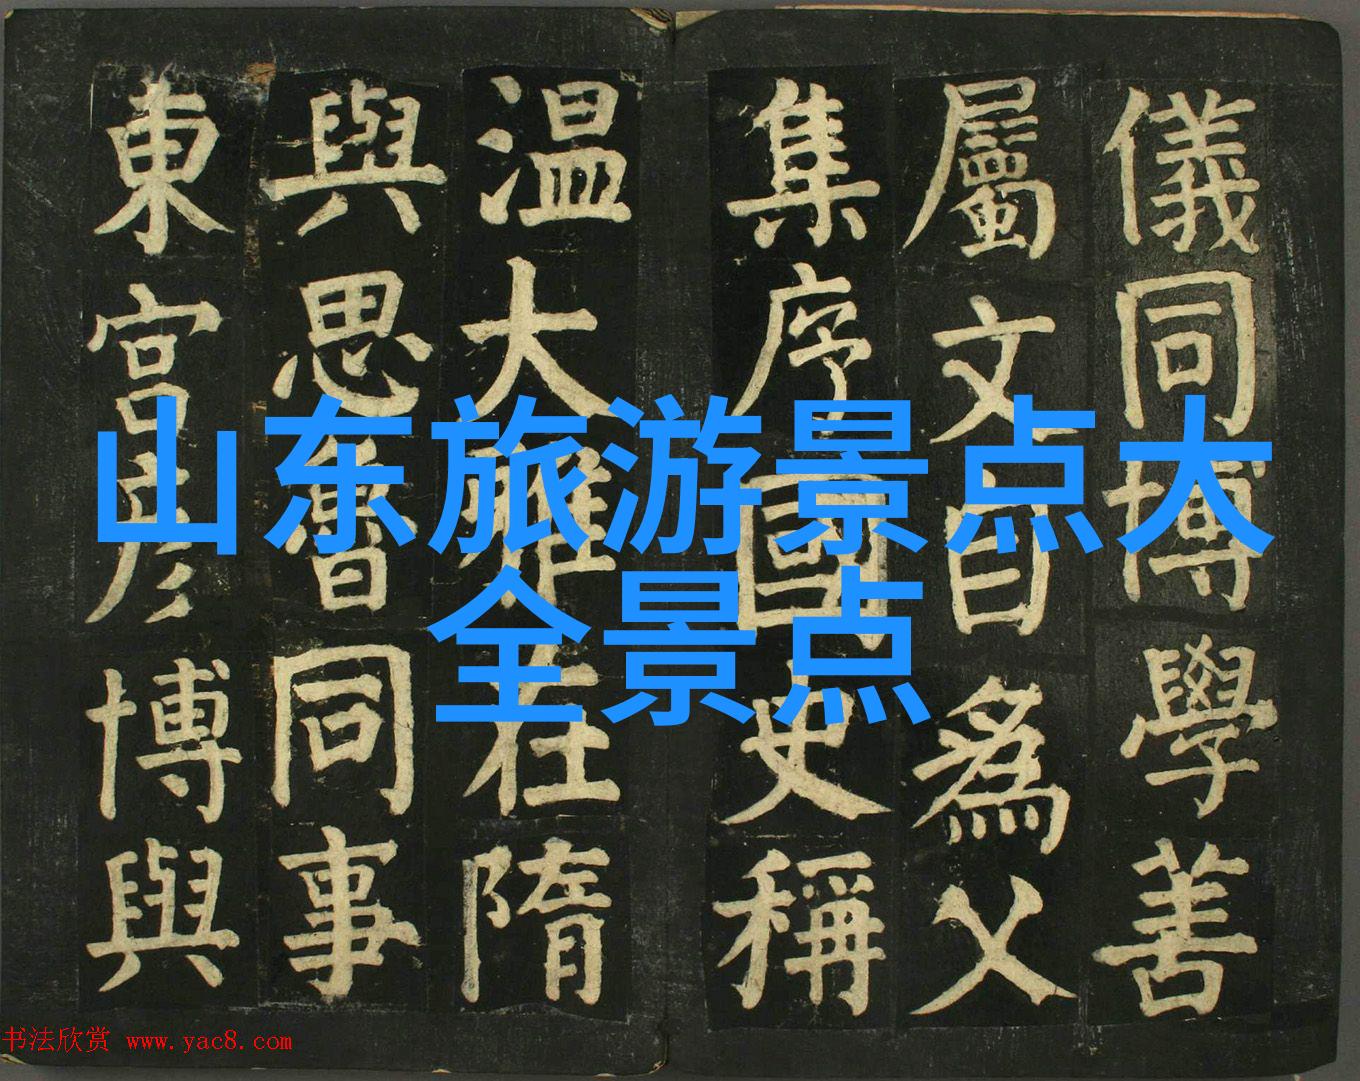 儀同博學善
屬文自為父
集序國史稱
温大雅在隋
與思魯同事
東宮彦博與
山东旅游景点大
全景点
书法欣赏 www.yac8.com